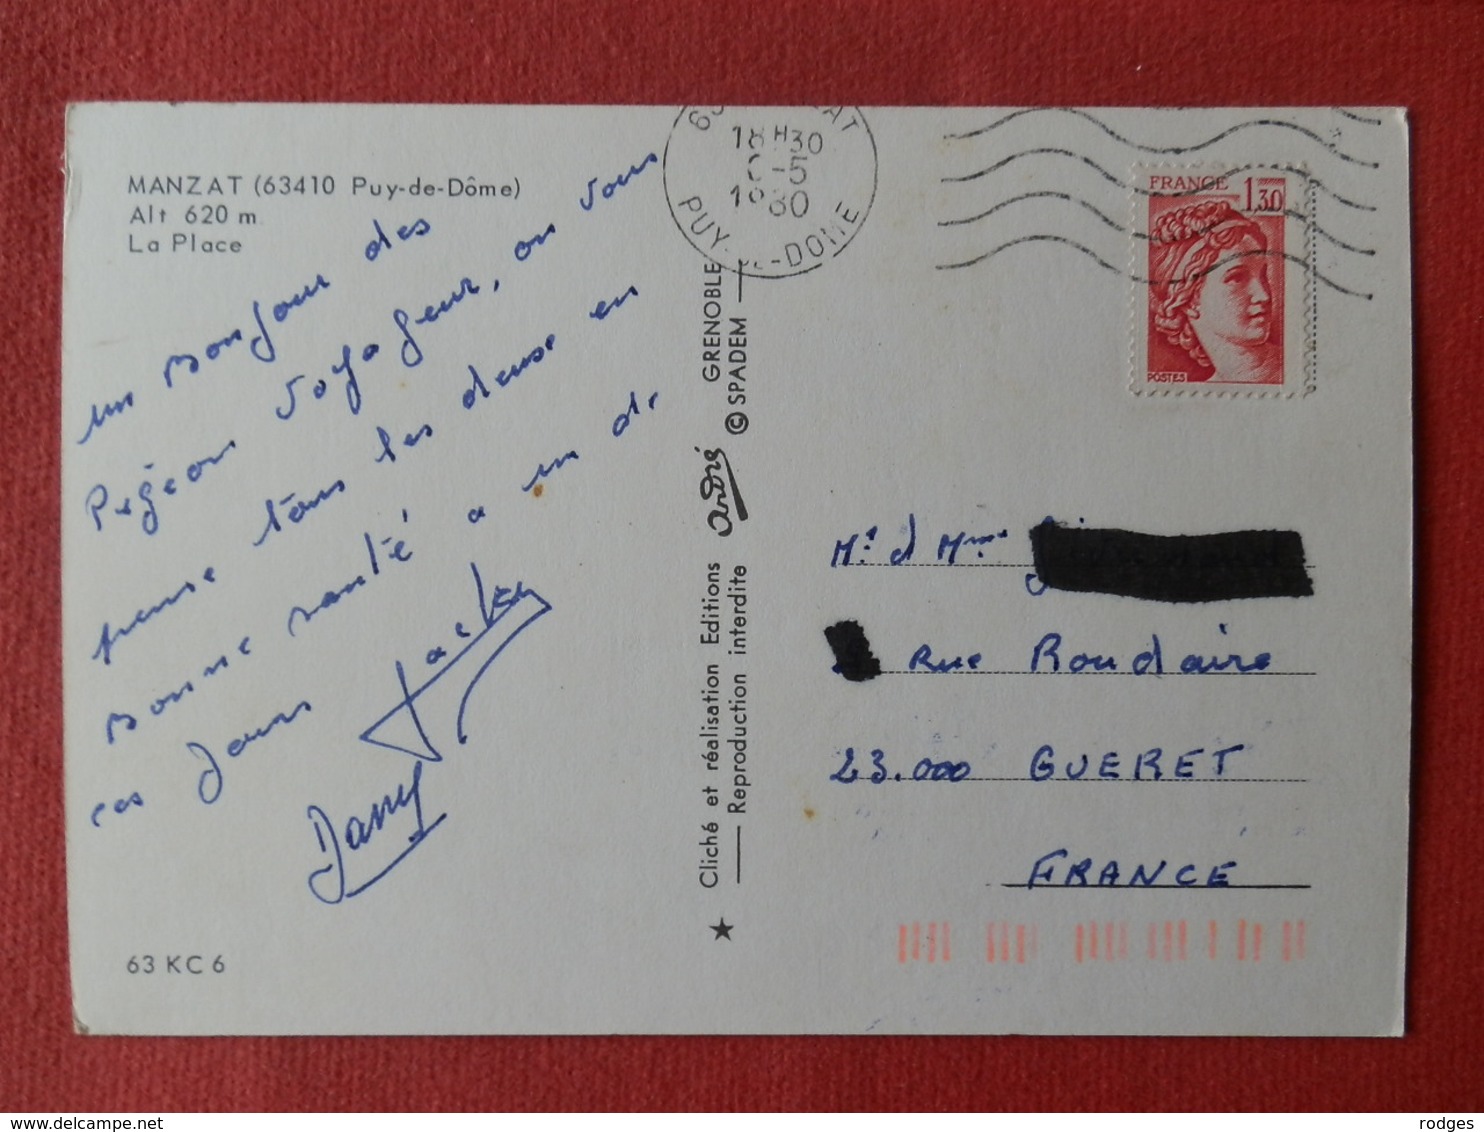 MANZAT (63410 Puy-de-Dôme)
Alt 620 m.
La Place
un Bonjour des
Pigeon voyageur, on vous
pense tous les deux en
Bonne santé a un de
ces Jours
Jackie
Dany
63 KC 6
Cliché et réalisation Editions André GRENOBLE
Reproduction interdite © SPADEM
18H30
-5
80
PUY-DE-DOME
FRANCE 1,30
POSTES
Mr d Mme
Rue Roudaire
23.000 GUERET
FRANCE
rodges